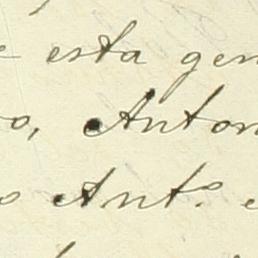 e esta gen
o, Anton
o Ant.º e